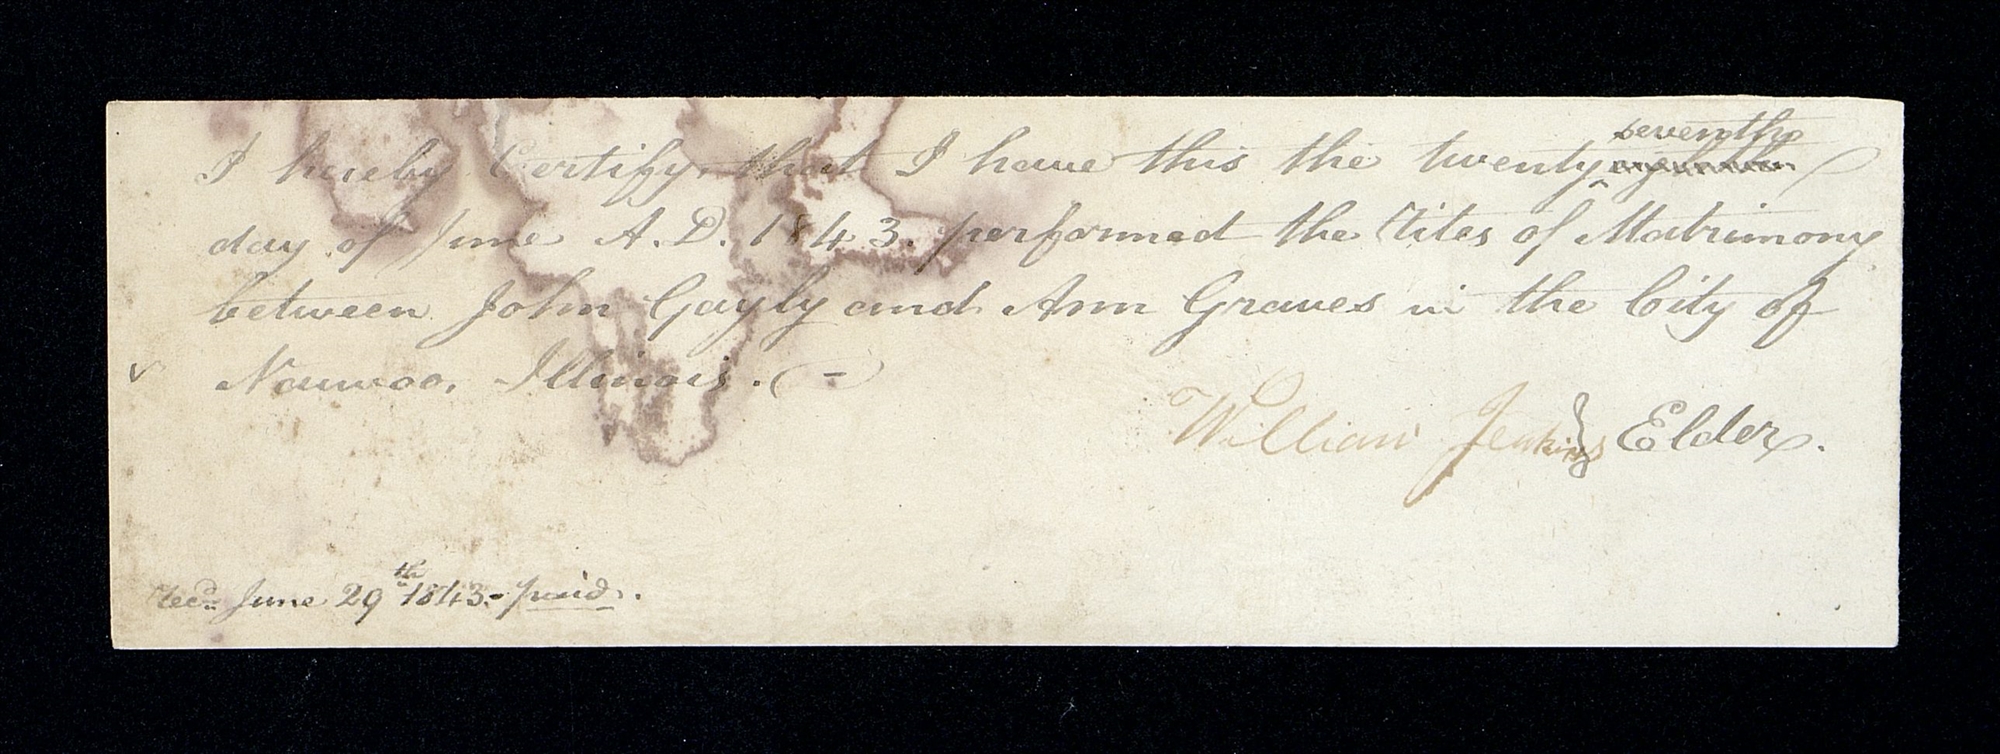 I hereby Certify, that I have this the twenty seventh
day of June A.D. 1843. performed the Rites of Matrimony
between John Gayly and Ann Graves in the City of
Nauvoo, Illinois. -
William Jenkins } Elder.
Recd June 29th 1843.- paid.